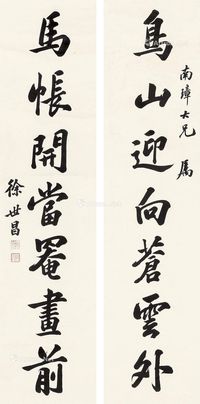 南璋大兄属
鳥山迎向蒼雲外
馬帳開當罨畫前
徐世昌